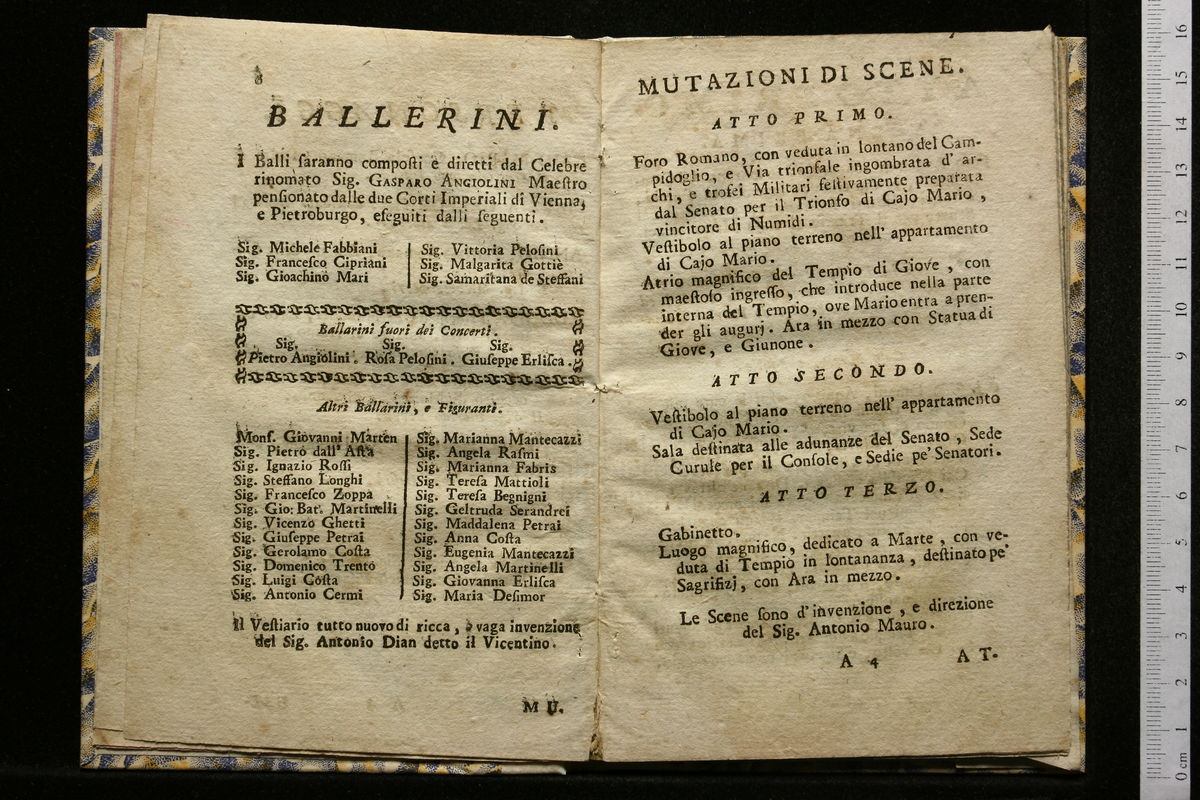 8
BALLERINI.
I Balli ſaranno compoſti e diretti dal Celebre
rinomato Sig. GASPARO ANGIOLINI Maeſtro
penſionato dalle due Corti Imperiali di Vienna,
e Pietroburgo, eſeguiti dalli ſeguenti.
Sig. Michele Fabbiani
Sig. Franceſco Cipriani
Sig. Gioachino Mari
Sig. Vittoria Peloſini
Sig. Malgarita Gottiè
Sig. Samaritana de Steffani
Ballarini fuori dei Concerti.
Sig. Sig. Sig.
Pietro Angiolini. Roſa Peloſini. Giuſeppe Erliſca.
Altri Ballarini, e Figuranti.
Monſ. Giovanni Marten
Sig. Pietro dall' Aſta
Sig. Ignazio Roſſi
Sig. Steffano Longhi
Sig. Franceſco Zoppa
Sig. Gio: Bat. Martinelli
Sig. Vicenzo Ghetti
Sig. Giuſeppe Petrai
Sig. Gerolamo Coſta
Sig. Domenico Trento
Sig. Luigi Coſta
Sig. Antonio Cermi
Sig. Marianna Mantecazzi
Sig. Angela Raſmi
Sig. Marianna Fabris
Sig. Tereſa Mattioli
Sig. Tereſa Begnigni
Sig. Geltruda Serandrei
Sig. Maddalena Petrai
Sig. Anna Coſta
Sig. Eugenia Mantecazzi
Sig. Angela Martinelli
Sig. Giovanna Erliſca
Sig. Maria Deſimor
Il Veſtiario tutto nuovo di ricca, e vaga invenzione
del Sig. Antonio Dian detto il Vicentino.
MU.
MUTAZIONI DI SCENE.
ATTO PRIMO.
Foro Romano, con veduta in lontano del Cam-
pidoglio, e Via trionfale ingombrata d' ar-
chi, e trofei Militari feſtivamente preparata
dal Senato per il Trionfo di Cajo Mario,
vincitore di Numidi.
Veſtibolo al piano terreno nell' appartamento
di Cajo Mario.
Atrio magnifico del Tempio di Giove, con
maeſtoſo ingreſſo, che introduce nella parte
interna del Tempio, ove Mario entra a pren-
der gli augurj. Ara in mezzo con Statua di
Giove, e Giunone.
ATTO SECONDO.
Veſtibolo al piano terreno nell' appartamento
di Cajo Mario.
Sala deſtinata alle adunanze del Senato, Sede
Curule per il Conſole, e Sedie pe' Senatori.
ATTO TERZO.
Gabinetto.
Luogo magnifico, dedicato a Marte, con ve-
duta di Tempio in lontananza, deſtinato pe'
Sagrifizj, con Ara in mezzo.
Le Scene ſono d'invenzione, e direzione
del Sig. Antonio Mauro.
A 4 AT-
16
15
14
13
12
11
10
9
8
7
6
5
4
3
2
1
0 cm